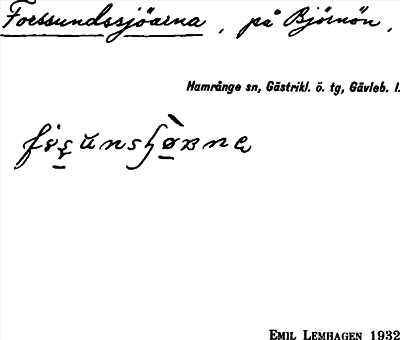 Forssundssjöarna, på Björnön,
Hamrånge sn, Gästrikl. ö. tg, Gävleb. l.
EMIL LEMHAGEN 1932